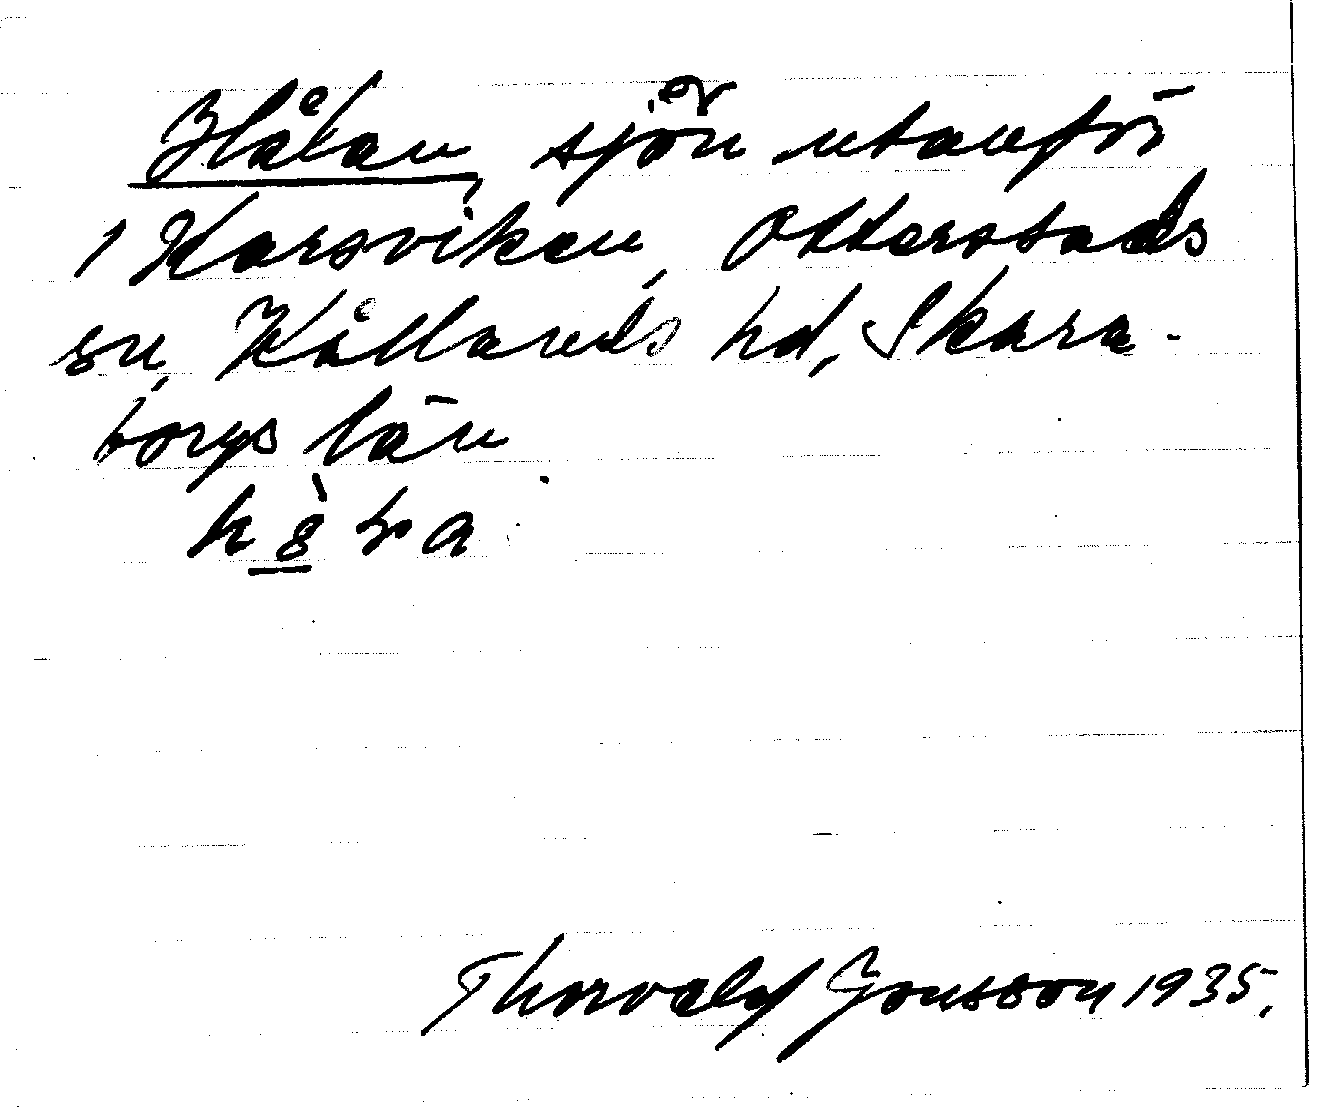 Håkan, sjön utanför
1 Karsviken, Otterstads
sn, Kållands hd, Skara-
borgs län.
Thorvald Jonsson 1935.